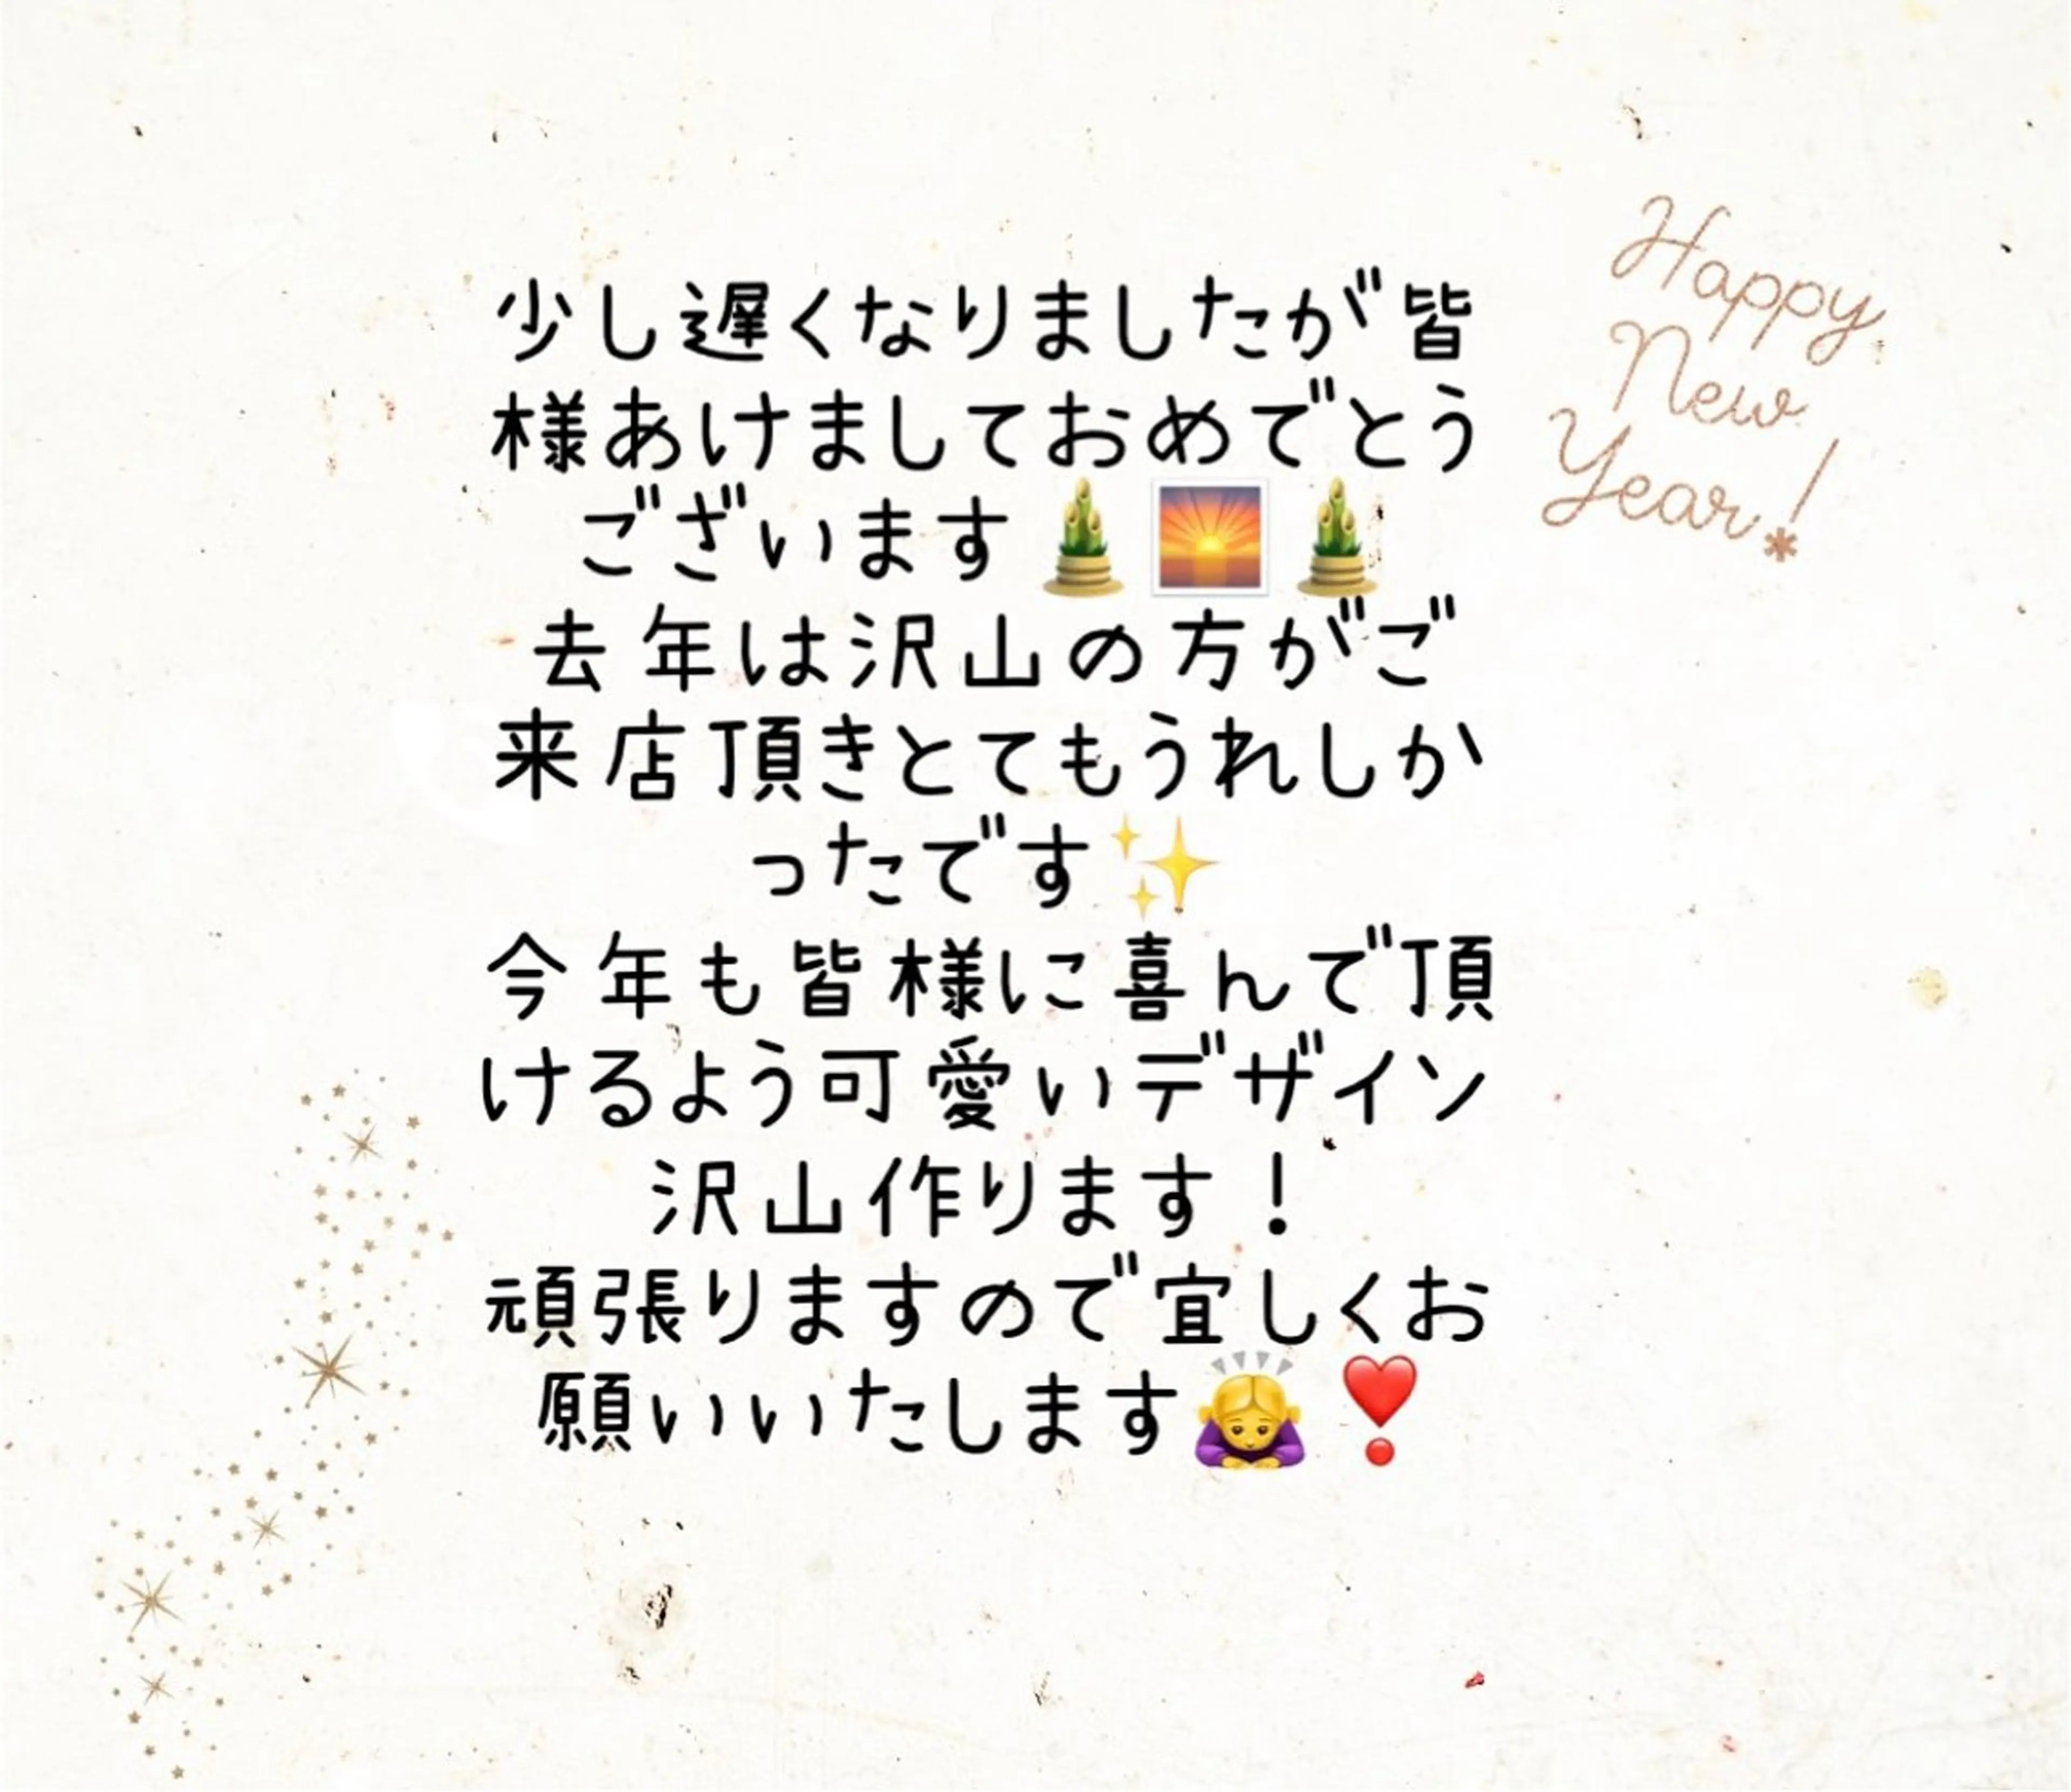 少し遅くなりましたが皆
様あけましておめでとう
ございます🎍🌅🎍
去年は沢山の方がご
来店頂きとてもうれしか
ったです✨
今年も皆様に喜んで頂
けるよう可愛いデザイン
沢山作ります！
頑張りますので宜しくお
願いいたします🙇‍♀️❣️
Happy
New
Year!